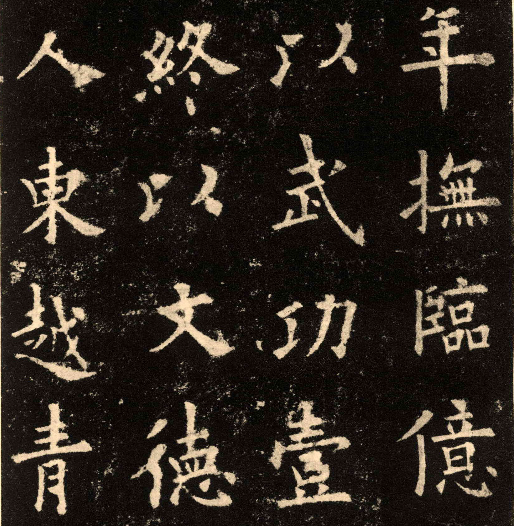 年撫臨億
以武功壹
終以文德
人東越青